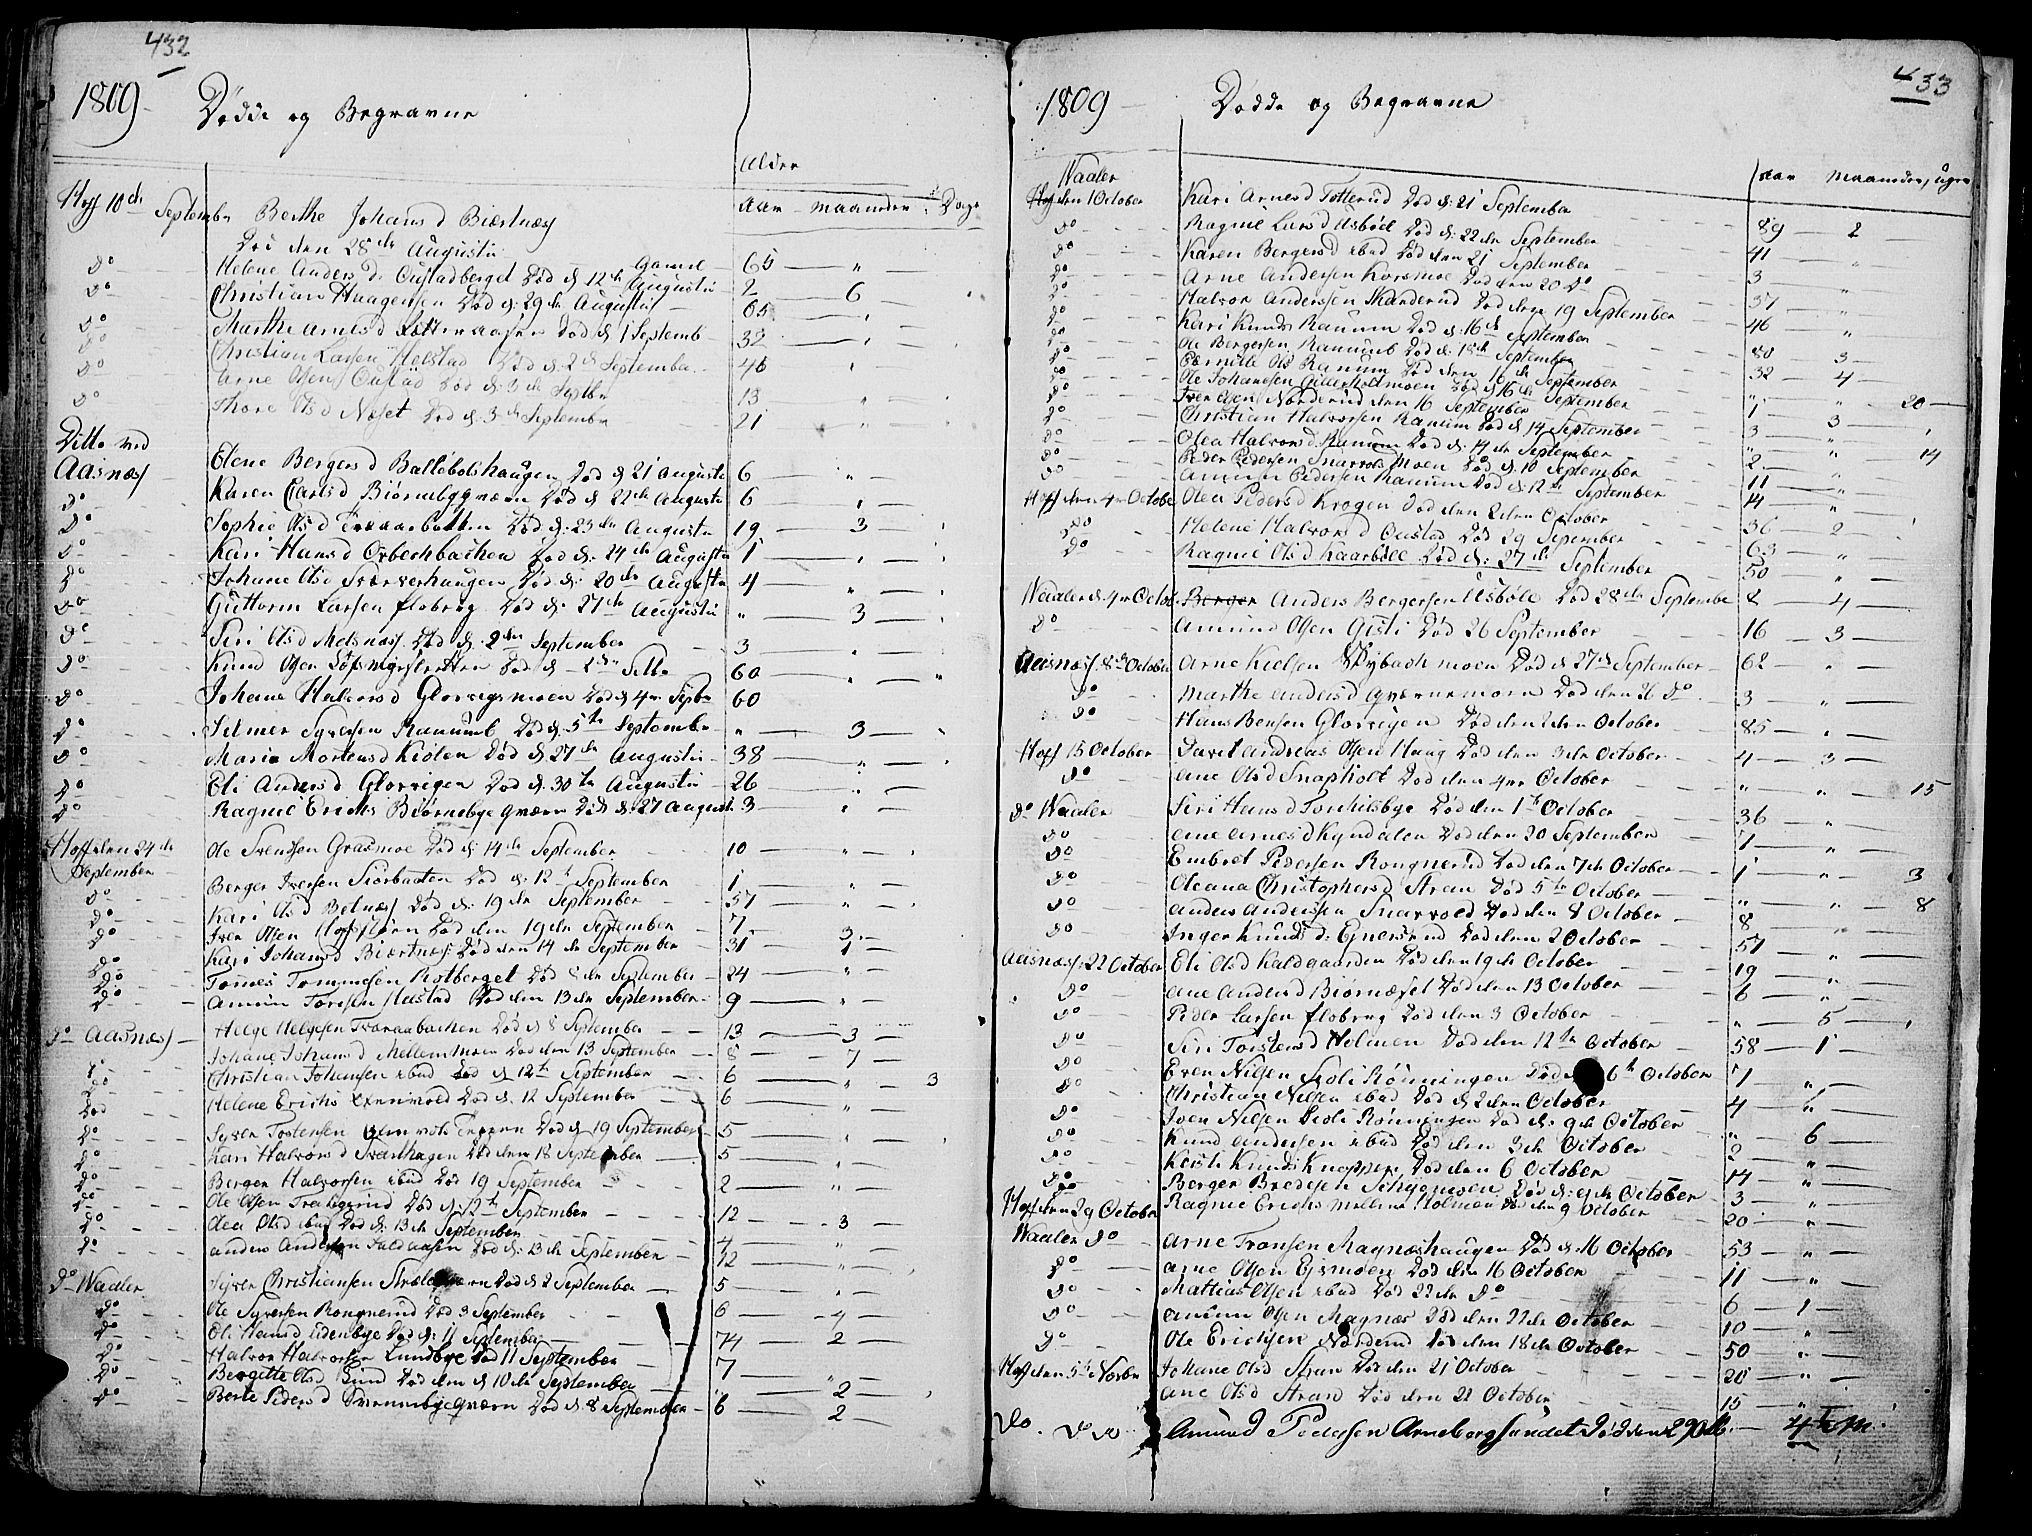 432
1809
Dödde og Begravne
Alder
Aar Maaneder Dage
Hoff 10de September Berthe Johansd Biertnæs
Död den 28de Augusti Gamel 65 "
do Helene Andersd Oustadberget Död d. 12te Augusti 2 6
do Christian Haagensen Död d. 29de Augusti 65
do Marthe Arnesd Död d. 1 Septemb 32
do Christian Larsen Helstad Död d. 2de Septembr 46
do Arne Olsen Oustad Död d. 3de Septbr 13
do Thore Olsd Næset Död d. 3de September 21
Ditto ved
Aasnæs Elene Bergersd Ballebolshaugen Död d. 21 Augusti 6
do Karen Carlsd Biörnebyqværn Död d. 22de Augusti 6
do Sophie Olsd Död d. 23de Augusti 19 3
do Kari Hansd Orbechbachen Död d. 24de Augusti 1
do Johane Olsd Sværverhaugen Död d. 20de Augusti 4
do Guttorm Larsen Flobrög Död d. 27de Augusti " 3
do Siri Olsd Melsnæs Död d. 2den September 3
do Knud Olsen Död d. 2den Ditto 60
do Johane Halvorsd Glorvigsmoen Död d. 4de Septbr 60
do Selmer Syversen Ranumb Död d. 5te September " 3
do Marie Mortensd Kiölen Död d. 27de Augusti 38
do Eli Andersd Glorvigen Död d. 30te Augusti 26
do Ragnil Erichs Biörnebye qværn Död d. 27 August 3
Hoff den 24de Ole Svensen Grasmoe Död d. 14de September 10
September Berger Iversen Siörbaaten Död d. 12t September 1
do Kari Olsd Belnæs Död d. 19de September 57
do Iver Olsen Död den 19de September 7 3
do Kari Johansd Biertnæs Död den 14de September 31 1
do Tomes Tommesen Rotberget Död 8de September 24
do Amun Torsen Hestad Död den 13de September 9
do Aasnæs Helge Helgesen Död d. 8 September 13 3
Johane Johansd Mellemmoen Död den 13 September 8 7
Christian Johansen ibid Död d. 12te September 6 " 3
do Helene Erichs Död d. 12 September 6
do Syver Tostensen Död d. 19 September 5
do Kari Halvorsd Svenhagen Död den 18 September 5
do Berger Halvorsen ibid Död 19 September 2
do Ole Olsen Död d. 12te September 12 3
do Olea Olsd ibid Död d. 13de September 4
do Anders Andersen Död d. 13de September 12
do Waaler Syver Christiansen Död d. 2 September 5
do Ole Syversen Rongnerud Död 3 September 6 4
do Eli Hansd Lidenbye Död d. 11 September 74 2
do Halvor Halvorsen Lundbye Död 11 September 7
do Bergitte Olsd Lund Död den d. 10de September " 2
do Berte Pedersd Svennebyeqværn Död d. 8 September 6 2
433
1809
Dödde og Begravne
Aar Maaneder, Uger
Waaler
Hof den 1 October Kari Arnesd Totterud Död d. 21 September 89 2
do Ragnil Larsd Usböel Död d. 22de September 41
do Karen Bergersd ibid Död den 21 September 3
do Arne Andersen Korsmoe Död den 20 do 37
do Halvor Anderssen Skanderud Död den 19 September 46
do Kari Knuds Ranum Död d. 16de September 80 3
do Ole Bergersen Ranumb Död d. 18de September 32 4
do Pernille Ols Ranum Död den 19de September " " 20
do Ole Johansen Gillerholtmoen Död d. 16de September 1 3
do Iver Norderud den 16 September 3
do Christian Halvorsen Ranum Död d. 14 September " " 14
do Olea Halvorsd Ranum Död d. 14de September 2
do Peder Pedersen Snarvols moen Död d. 10 September 11
do Amun Pedersen Ranum Död d. 12te September 14
Hoff den 4de October Olea Pedersd Krogen Död den 2den October 36 2
do Helene Halvorsd Oustad Död 29 September 63
do Ragnil Olsd Kaarböll Död d. 27de September 50
Waaler d. 4de Octob. Anders Bergersen Usböle Död 28de September 2 4
do Amund Olsen Gisti Död 26 September 16 3
Aasnæs 8de October Arne Kielsen moen Död d. 27de September 62
do Marthe Andersd qværnemoen Död den 26 do 3
do Hans Bensen Glorvigen Död den 2den October 85
Hoff 15 October Andreas Olsen Haug Död den 3de October 4 3
do Ane Olsd Snapholt Död den 4de October " " 15
do Waaler Siri Hansd Tonhilsbye Död den 1te October 36
do Ane Arnesd Kyndelen Död den 20 September 1
do Embret Pedersen Rongnerud Död den 7de October 1 " 3
do Oleana Christophersd Stran Död 5te October " " 8
do Anders Andersen Snarvold Död den 8 October 8
do Inger Knuds d. Död den 2 October 57
Aasnæs 22 October Eli Olsd Kaldgaarden Död den 19de October 19
do Ane Andersd Biörneset Död den 13 October 6
do Peder Larsen Flobrug Död den 3 October " 5
do Siri Torstensd Holmen Död den 12te October 58 1
do Even Nilsen Skoli Rönningen Död 6te October 1
do Christian Nilsen ibid Död d. 2den October 4
do Iver Nilsen Rönningen Död d. 9de October " 6
do Knud Andersen ibid Död den 3de October 2
do Kersti Knuds Knappen Död den 6 October 14
do Berger Bredesen Död d. 9de October 3
do Ragnil Erichs Mellem Holmen Död den 9 October 20
Hof den 29 October
Waaler do Arne Tronsen Magnæshaugen Död d. 16 October 53
do Arne Olsen Eismoen Död den 16 October 11
do Mathias Olsen ibid Död 22de do 6 1
do Amun Olsen Magnæs Död den 22de October 10
do Ole Erichsen Norderud Död den 18de October 50
Hof den 5te Novbr Johane Olsd Stran Död den 21 October 28
Ane Olsd Strand Död den 21 October 15
do. do Amund Pedersen Arnebergsundet Död den 29 Octb. 4 M.